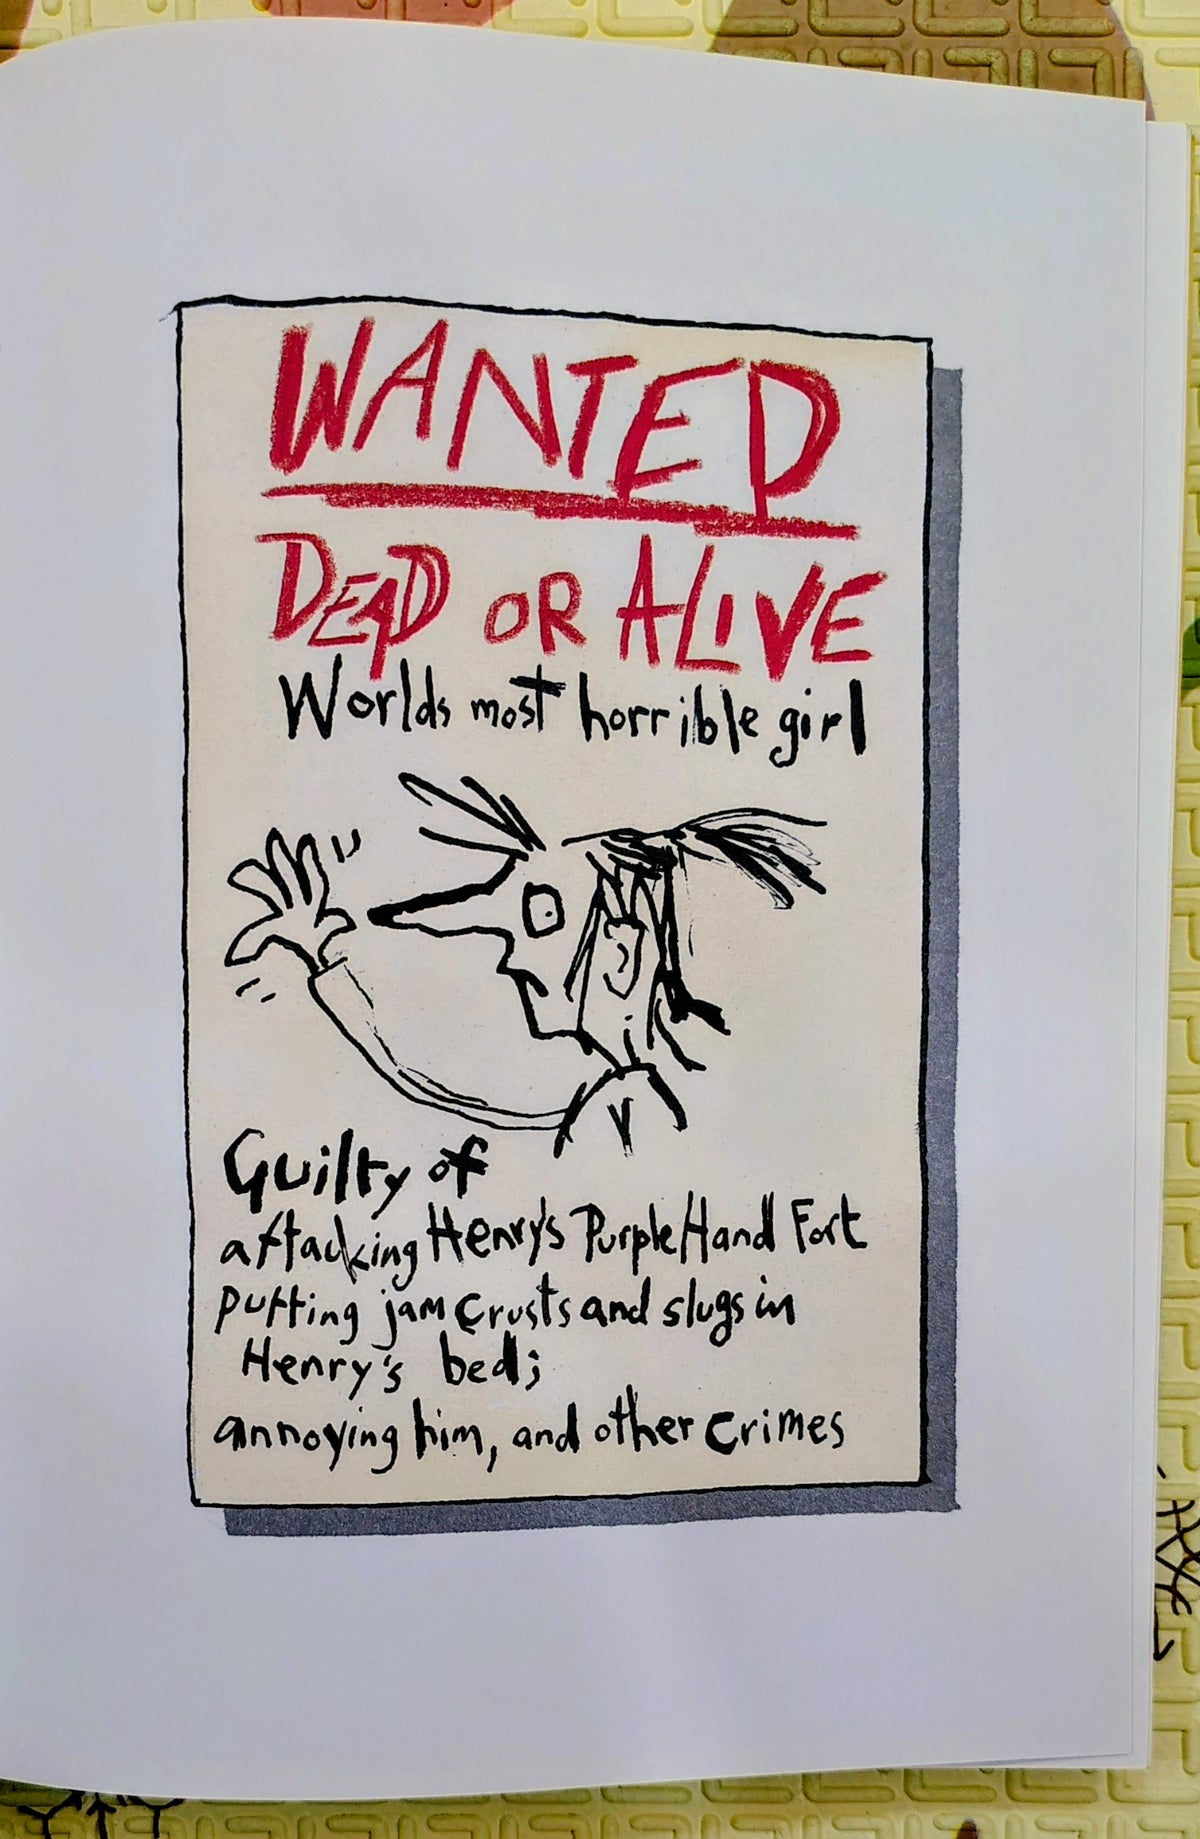 WANTED
DEAD OR ALIVE
Worlds most horrible girl
Guilty of
attacking Henry's Purple Hand Fort
putting jam crusts and slugs in
Henry's bed;
annoying him, and other crimes